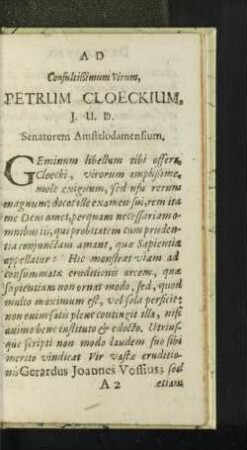 AD
Consultissimum Virum,
PETRUM CLOECKIUM,
J. U. D.
Senatorem Amstelodamensium,
GEminum libellum tibi offero,
Cloecki, virorum amplissime,
mole exiguum, sed usu rerum
magnum: docet ille examen sui, rem ita
me Deus amet, perquam necessariam o-
mnibus iis, qui probitatem cum pruden-
tia conjunctam amant, quæ Sapientia
appellatur: Hic monstrat viam ad
consummatæ eruditionis arcem, quæ
sapientiam non ornat modo, sed, quod
multo maximum est, vel sola perficit:
non enim satis plene contingit illa, nisi
animo bene instituto & edocto. Utrius-
que scripti non modo laudem suo sibi
merito vindicat Vir vastæ eruditio-
nis Gerardus Joannes Vossius; sed
A 2 etiam